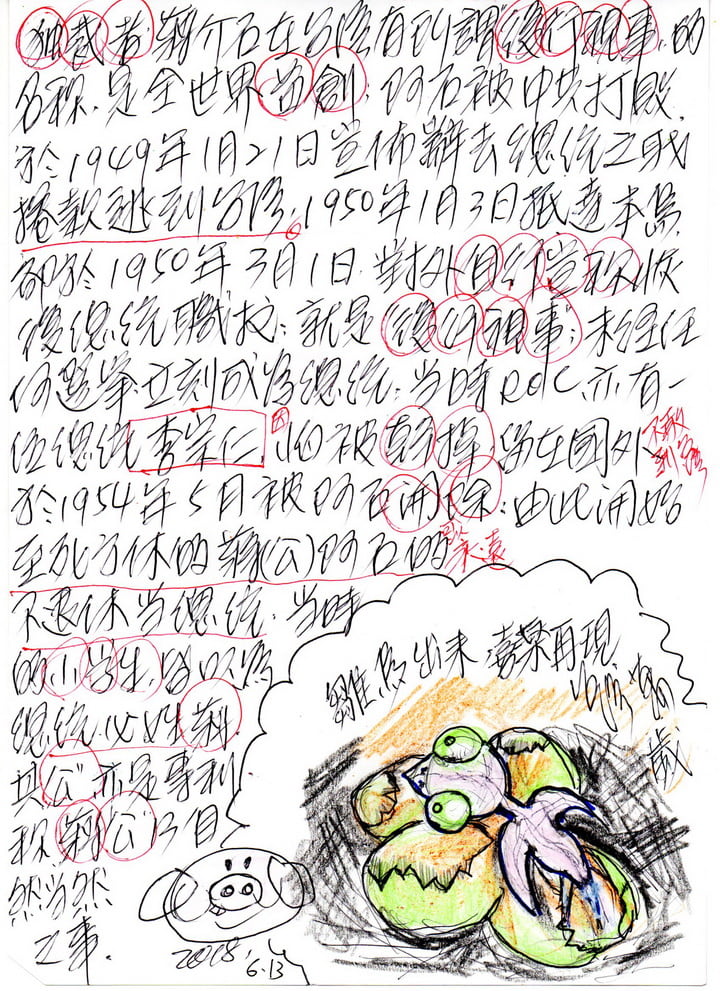 獨裁者蔣介石在台灣有到謂"復行視事"的
名稱.是全世界首創:阿石被中共打敗.
於1949年1月21日宣佈辭去總統之職
捲款逃到台灣。1950年1月3日抵達本島
卻於1950年3月1日.對外自行宣稱恢
復總統職權:就是"復行視事":未經任
何選舉立刻成為總統:當時ROC亦有一
位總統李宗仁,因被幹掉,留在國外 不敢到台灣
於1954年5月被阿石開除:由此開始
至死方休的蔣(公)阿石的永遠
不退休當總統:當時
的小學生,皆以為
總統必姓蔣
其"公"亦是專利
稱蔣公乃自
然當然
之事.
雛鳥出來 喜榮再現
萬歲
2008.
6.13